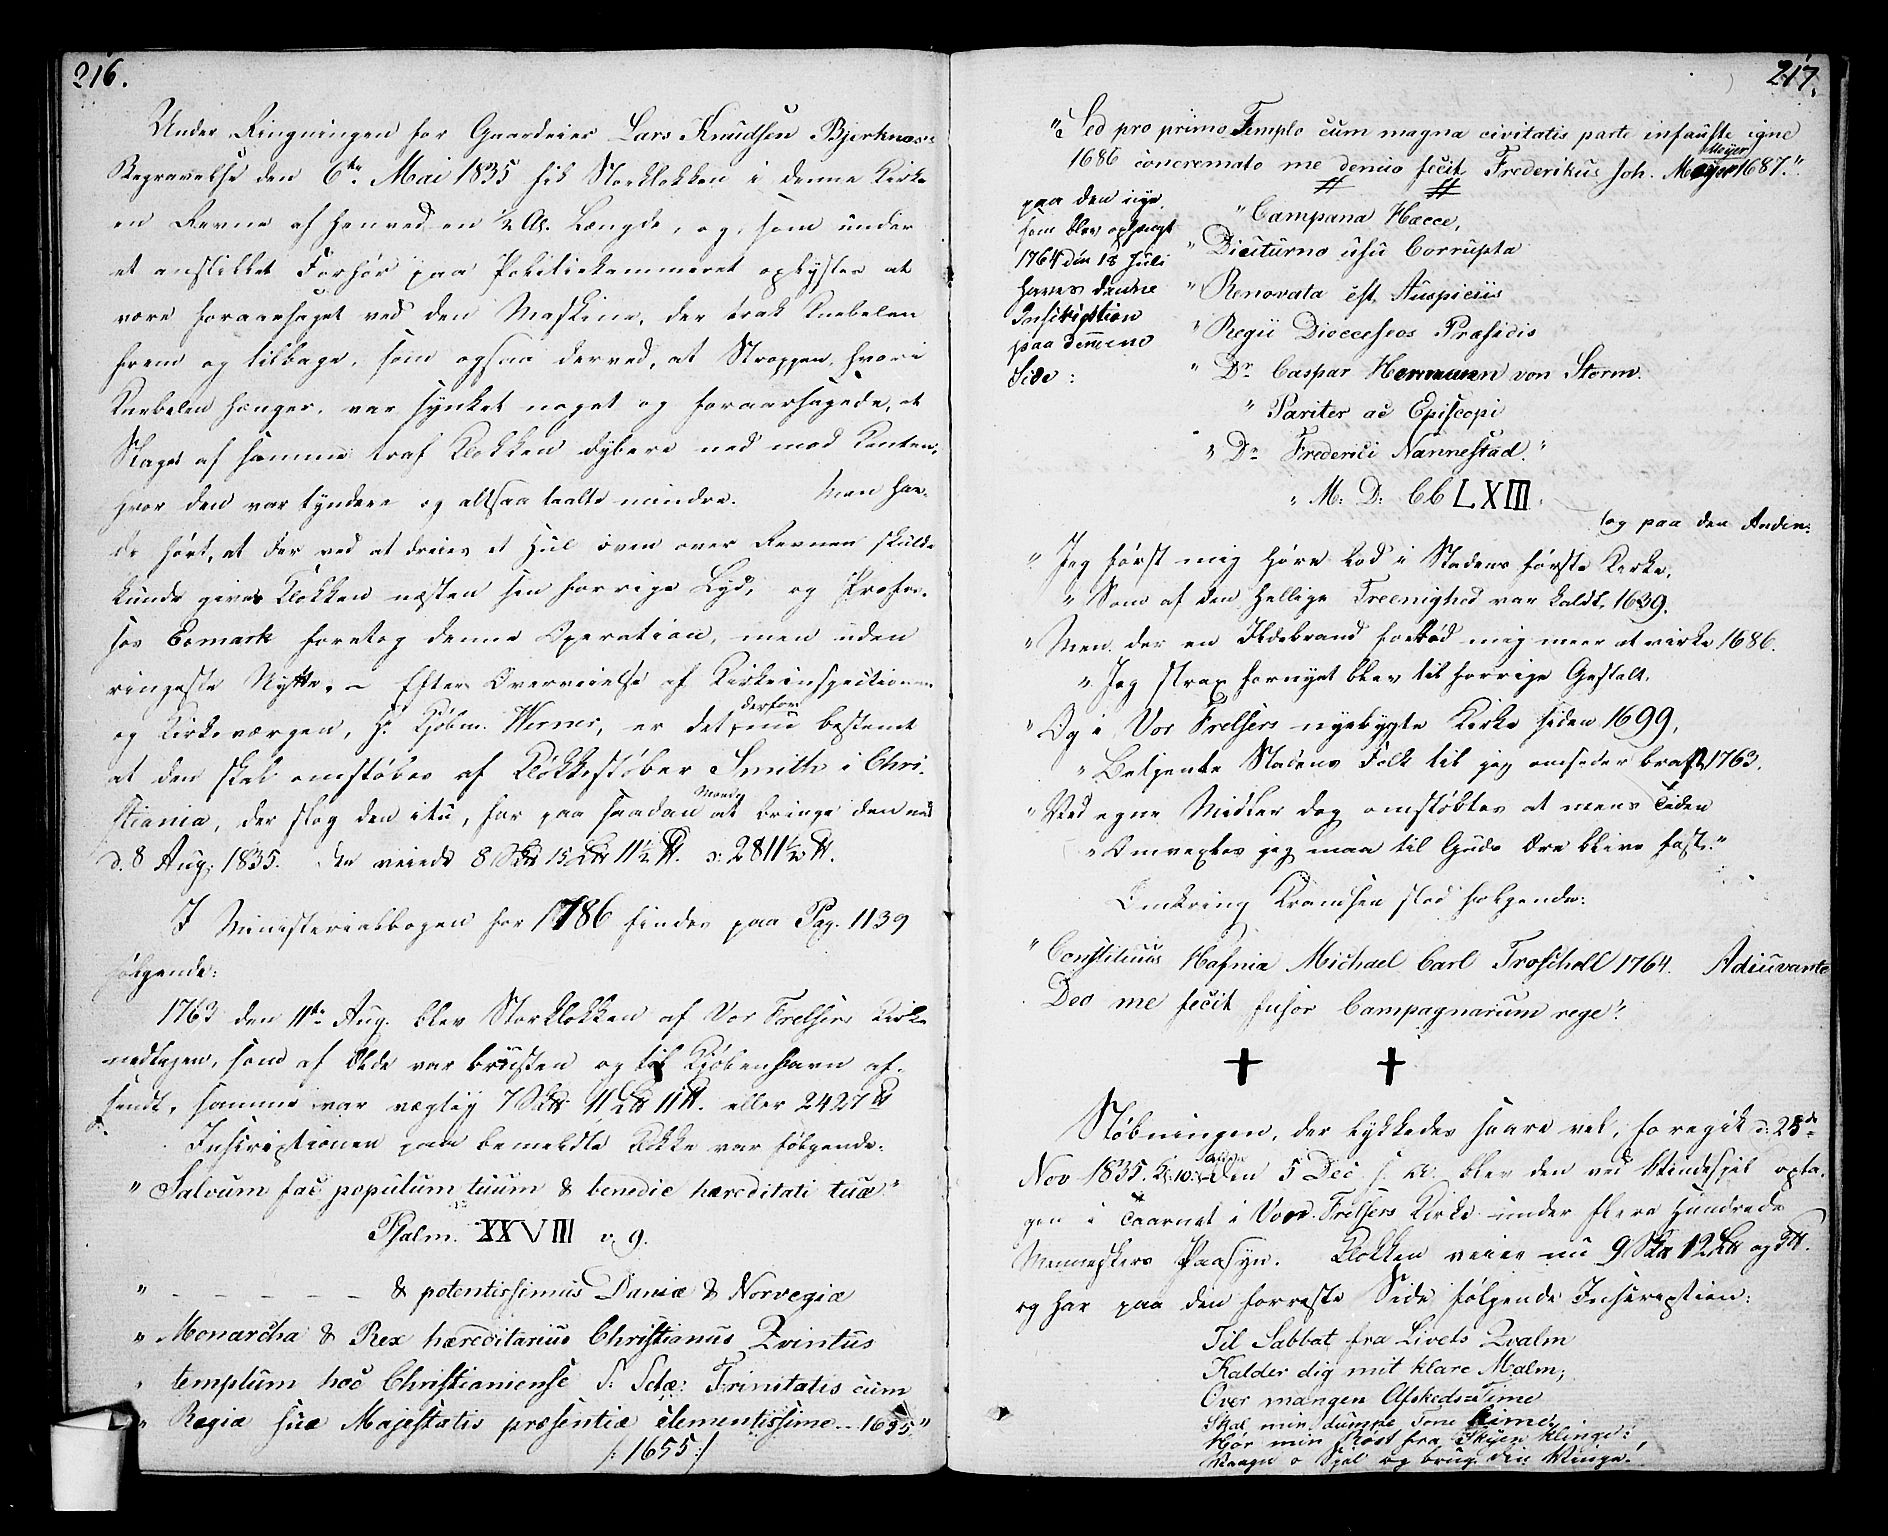 216.
Under Ringningen for Gaardeier Lars Knudsen Bjerknæs
Begravelse den 6te Mai 1835 fik Storklokken i denne Kirke
en Revne af henved en ½ Al. Længde, og, som under
et anstillet Forhør paa Politiekammeret oplystes at
være foraarsaget ved den Maskine, der trak Knebelen
frem og tilbage, som ogsaa derved, at Stroppen, hvori
Knebelen hænger, var synket noget og foraarsagede, at
Slaget af samme traf Klokken dybere ned mod Kanten,
hvor den var tyndere og altsaa taalte mindre. Men hav-
de hørt, at der ved at dreies et Hul oven over Revnen skulde
kunde gives Klokken næsten sin forrige Lyd, og Profes-
sor Esmark foretog denne Operation, men uden
ringeste Nytte. – Efter Overveielse af Kirkeinspectionen
og Kirkeværgen, Hr. Kjøbm. Werner, er det derfor nu bestemt
at den skal omstøbes af Klokkestøber Smith i Chri-
stiania, der slog den itu, for paa saadan Maade at bringe den ned
d. 8 Aug. 1835. Den veiede 8 Sk℔ 15 L℔ 11½ ℔. ɔ: 2811½ ℔.
I Ministerialbogen for 1786 findes paa Pag. 1139
følgende:
1763 den 11te Aug. blev Storklokken af Vor Frelsers Kirke
nedtagen, som af Ælde var brusten og til Kjøbenhavn af-
sendt, samme var vægtig 7 Sk℔ 11 L℔ 11 ℔. eller 2427 ℔
Inscriptionen paa bemeldte Klokke var følgende:
" Salvum fac populum tuum & benedic hæreditati tuæ"
Psalm. XXVIII v. 9.
" – – – – – – & potentissimus Daniæ & Norvegiæ
" Monarcha & Rex hæreditarius Christianus Qvintus
" templum hoc Christianiense S: Sctæ: Trinitatis cum
" Regiæ suæ Majestatis præsentiæ clementissime – 1695"
/: 1655 :/
217.
"Sed pro primo Templo cum magna civitatis parte infauste igne
1686 concremato me denuo fecit Frederikus Joh. Meyer Meyer 1687."
paa den nye,
som blev ophængt
1764 den 18 Juli
haves denne
Inscription
paa den ene
Side:
"Campana Hæcce,
"Diuturno usu Corrupta
"Renovata est, Auspiciis
"Regii Dioeceseos Præsidis
" Dn Caspar Hermann von Storm.
" Pariter ac Episcopi
" Dn Frederici Nannestad."
" M: D: CC LXIII.
og paa den Anden:
" Jeg først mig høre lod i Stadens første Kirke,
" Som af den Hellige Treenighed var kaldt, 1639.
" Men der en Ildebrand forbød mig meer at virke 1686.
" Jeg strax fornyet blev til forrige Gestalt.
" Og i Vor Frelsers nyebygte Kirke siden 1699,
" Betjente Stadens Folk til jeg omsider brast, 1763.
" Ved egne Midler dog omstøbtes at mens Tiden
" Omvexles jeg maa til Guds Ære blive fast."
Omkring Krandsen stod følgende:
" Constituus Hafnia Michael Carl Troschell 1764. Adiuvante
Deo me fecit fusor Campagnarum rege".
Støbningen, der lykkedes saare vel, foregik d. 28de
Nov 1835. Kl: 10. Den 5 Dec s. A. blev den ved Vindespil opta-
gen i Taarnet i Vor Frelsers Kirke under flere Hundrede
Menneskers Paasyn. Klokken veier nu 9 Sk℔ 12 L℔ og ℔.
og har paa den forreste Side følgende Inscription:
Til Sabbat fra Livets Qvalm
Kalder dig mit klare Malm;
Over mangen Afskeds Time
Skal min dumpe Tone kime.
Hør min Røst fra Skyen klinge!
Vaagn o Sjel og brug din Vinge!